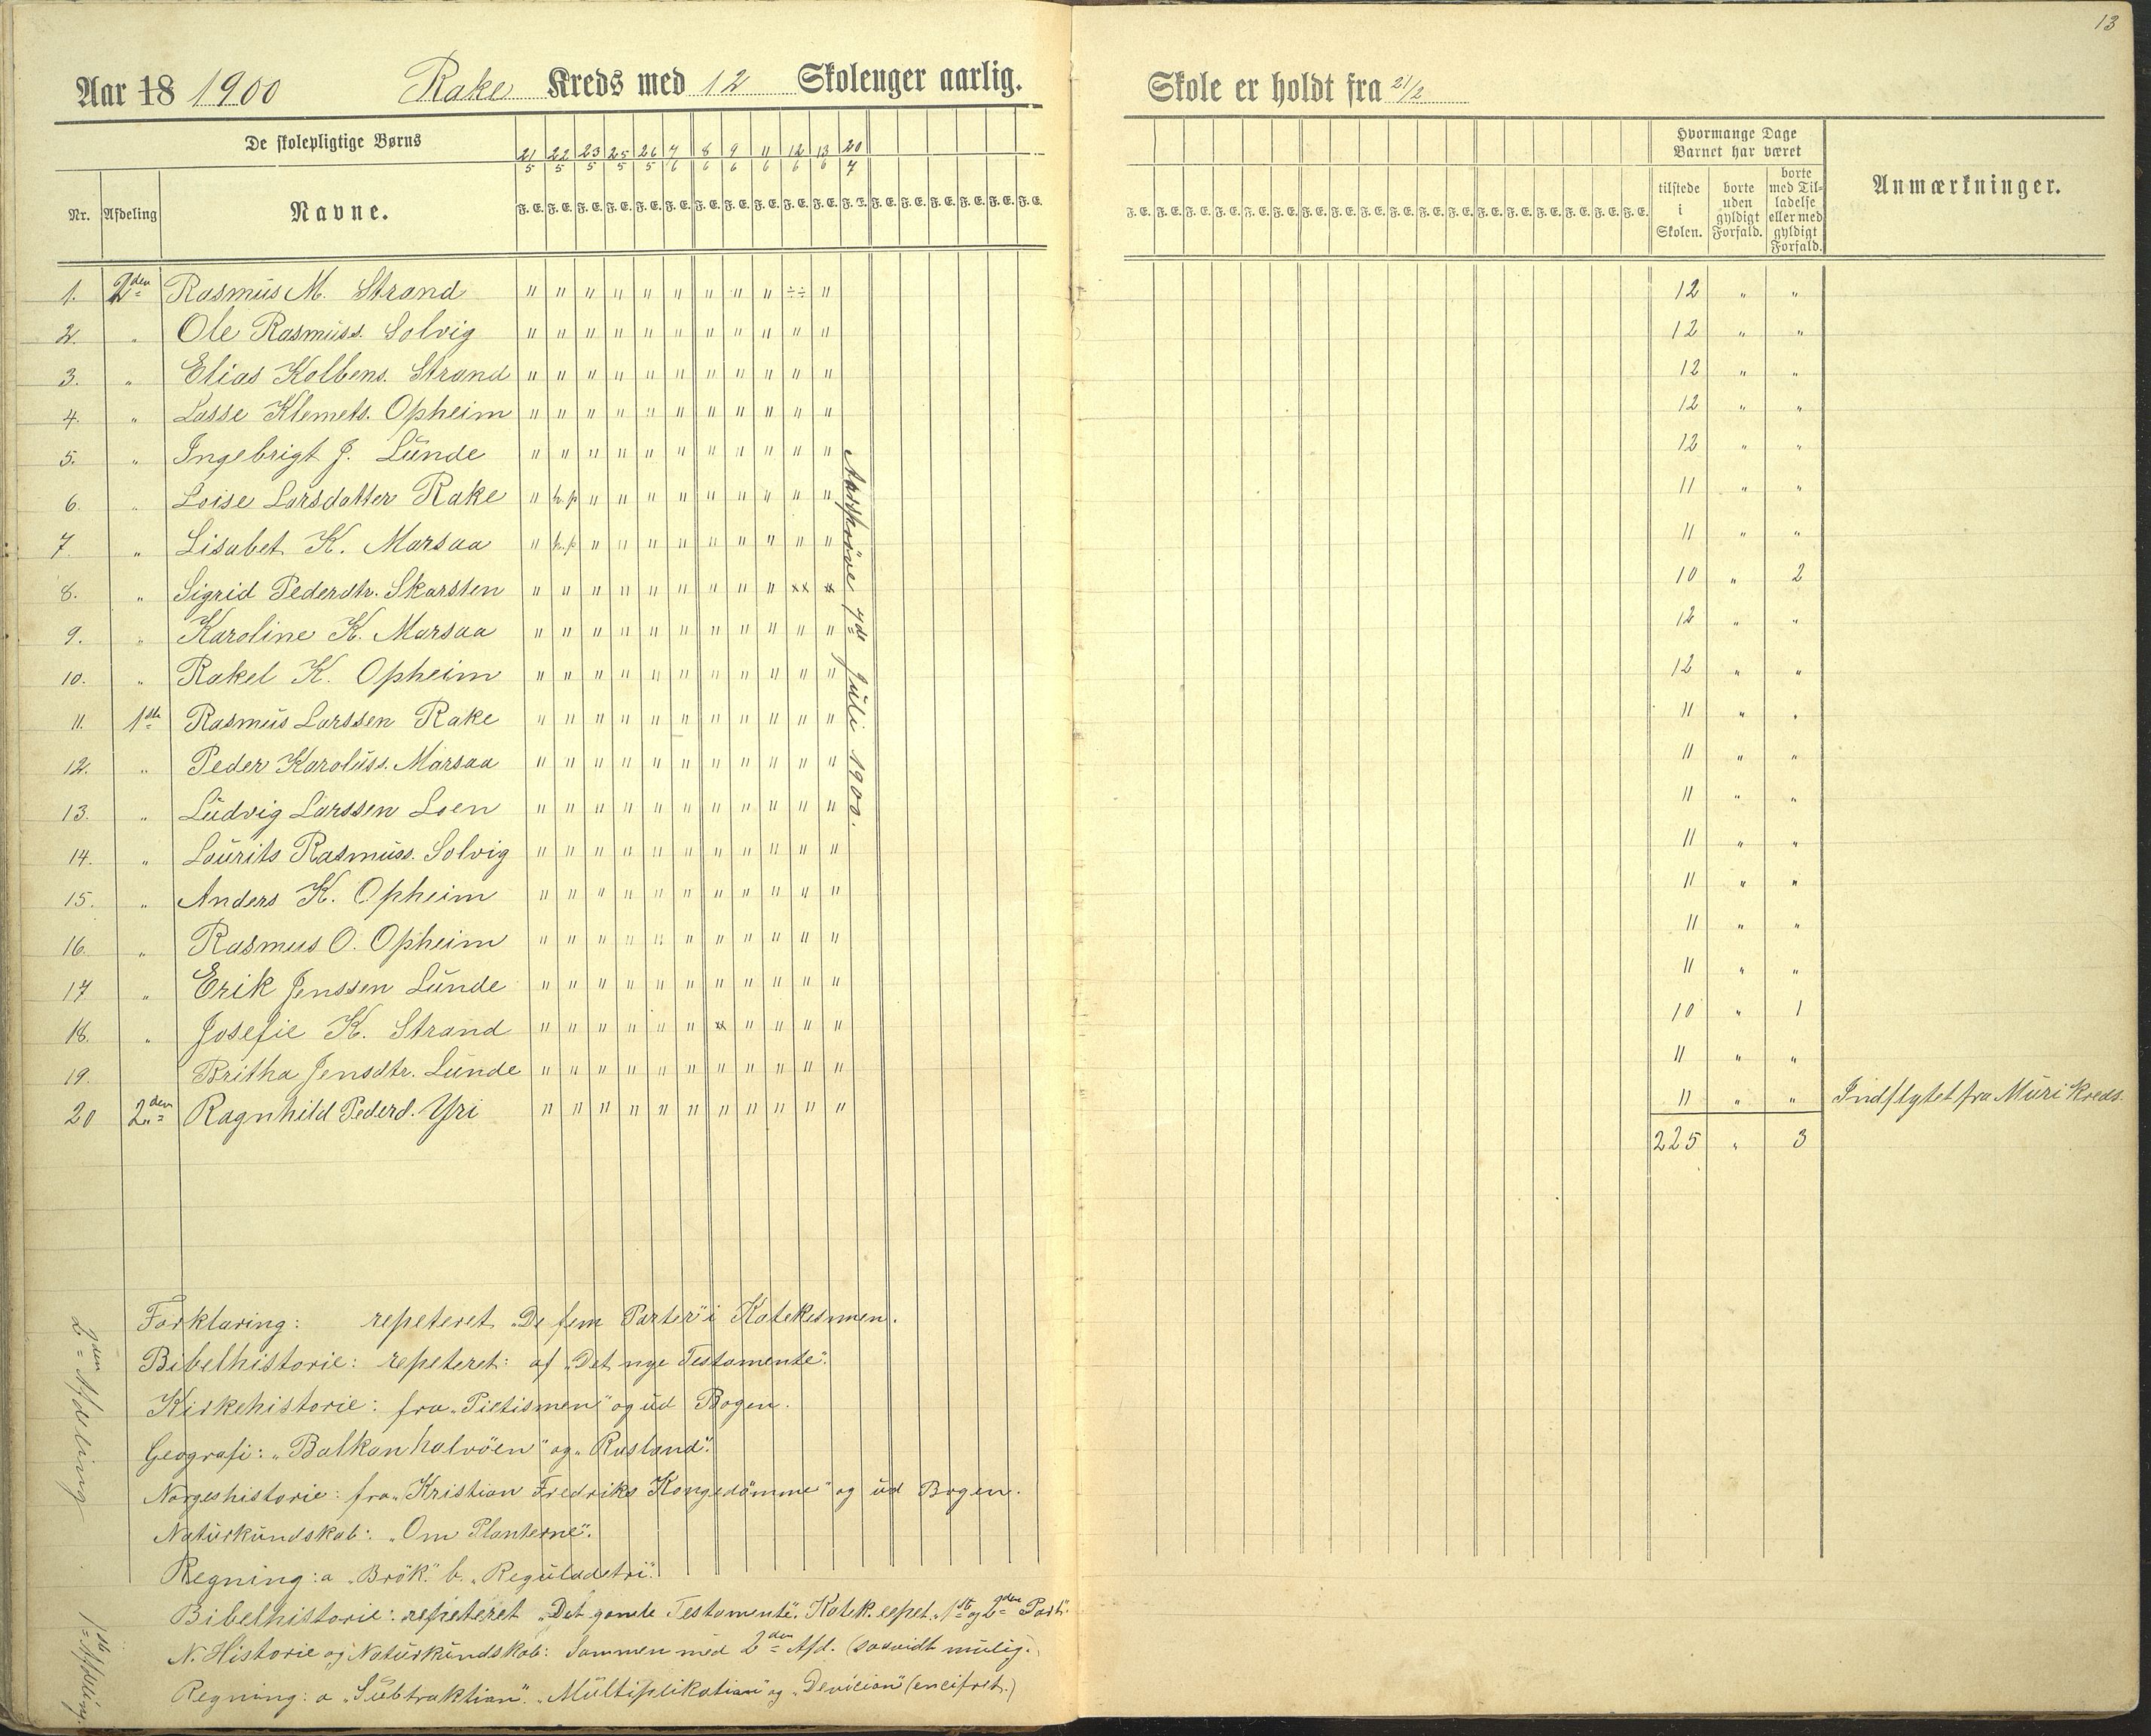 13
Aar 18 1900 Rake Kreds med 12 Skoleuger aarlig.
Skole er holdt fra 21/2
De skolepligtige Børns
Nr. Afdeling Navne.
21/5 22/5 23/5 25/5 26/5 7/6 8/6 9/6 11/6 12/6 13/6 20/7
F. E. F. E. F. E. F. E. F. E. F. E. F. E. F. E. F. E. F. E. F. E. F. E. F. E. F. E. F. E. F. E. F. E. F. E.
Hvormange Dage
Barnet har været
tilstede i Skolen.
borte uden gyldigt Forfald.
borte med Tilladelse eller med gyldigt Forfald.
Anmærkninger.
1. 2den Rasmus M. Strand " " " " " " " " " ÷÷ " 12 " "
2. " Ole Rasmuss. Solvig " " " " " " " " " " " 12 " "
3. " Elias Kolbens. Strand " " " " " " " " " " " 12 " "
4. " Lasse Klemets. Opheim " " " " " " " " " " " 12 " "
5. " Ingebrigt J. Lunde " " " " " " " " " " " 12 " "
6. " Loise Larsdatter Rake " h.p " " " " " " " " " 11 " "
7. " Lisabet K. Marsaa " h.p " " " " " " " " " 11 " "
8. " Sigrid Pederdtr. Skarsten " " " " " " " " " xx x 10 " 2
9. " Karoline K. Marsaa " " " " " " " " " " " 12 " "
10. " Rakel K. Opheim " " " " " " " " " " " 12 " "
11. 1ste Rasmus Larssen Rake " " " " " " " " " " " 11 " "
12. " Peder Karoluss. Marsaa " " " " " " " " " " " 11 " "
13. " Ludvig Larssen Loen " " " " " " " " " " " 11 " "
14. " Laurits Rasmuss. Solvig " " " " " " " " " " " 11 " "
15. " Anders K. Opheim " " " " " " " " " " " 11 " "
16. " Rasmus O. Opheim " " " " " " " " " " " 11 " "
17 " Erik Jenssen Lunde " " " " " " " " " " " 11 " "
18. " Josefie K. Strand " " " " " " x " " " " 10 " 1
19. Britha Jensdtr. Lunde " " " " " " " " " " " 11 " "
20 2den Ragnhild Pederd. Yri " " " " " " " " " " " 11 " " Indflytet fra Muri Kreds.
225 " 3
Aarsprøve 7de Juli 1900.
2den Afdeling
Forklaring: repeteret "De fem Parter" i Katekesmen.
Bibelhistorie: repeteret: af "Det nye Testamente".
Kirkehistorie: fra "Pietismen" og ud Bogen.
Geografi: "Balkanhalvöen" og "Rusland".
Norgeshistorie: fra "Kristian Fredriks Kongedömme" og ud Bogen.
Naturkundskab: "Om Planterne".
Regning: a "Brök". b. "Reguladetri".
1ste Afdeling.
Bibelhistorie: repeteret "Det gamle Testamente". Katek. repet. "1ste og 2den Part".
N. Historie og Naturkundskab: Sammen med 2den Afd. (saavidt mulig.)
Regning: a "Subtraktion". "Multiplikation" og "Devision" (encifret.)